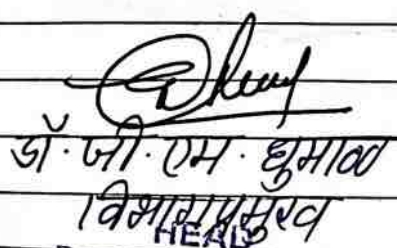 डॉ. जी. एम. धुमाळ
विभागप्रमुख
HEAD